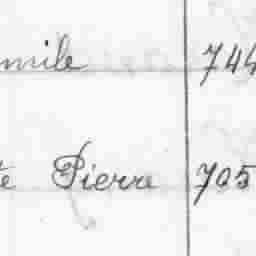 mile 744
te Pierre 705